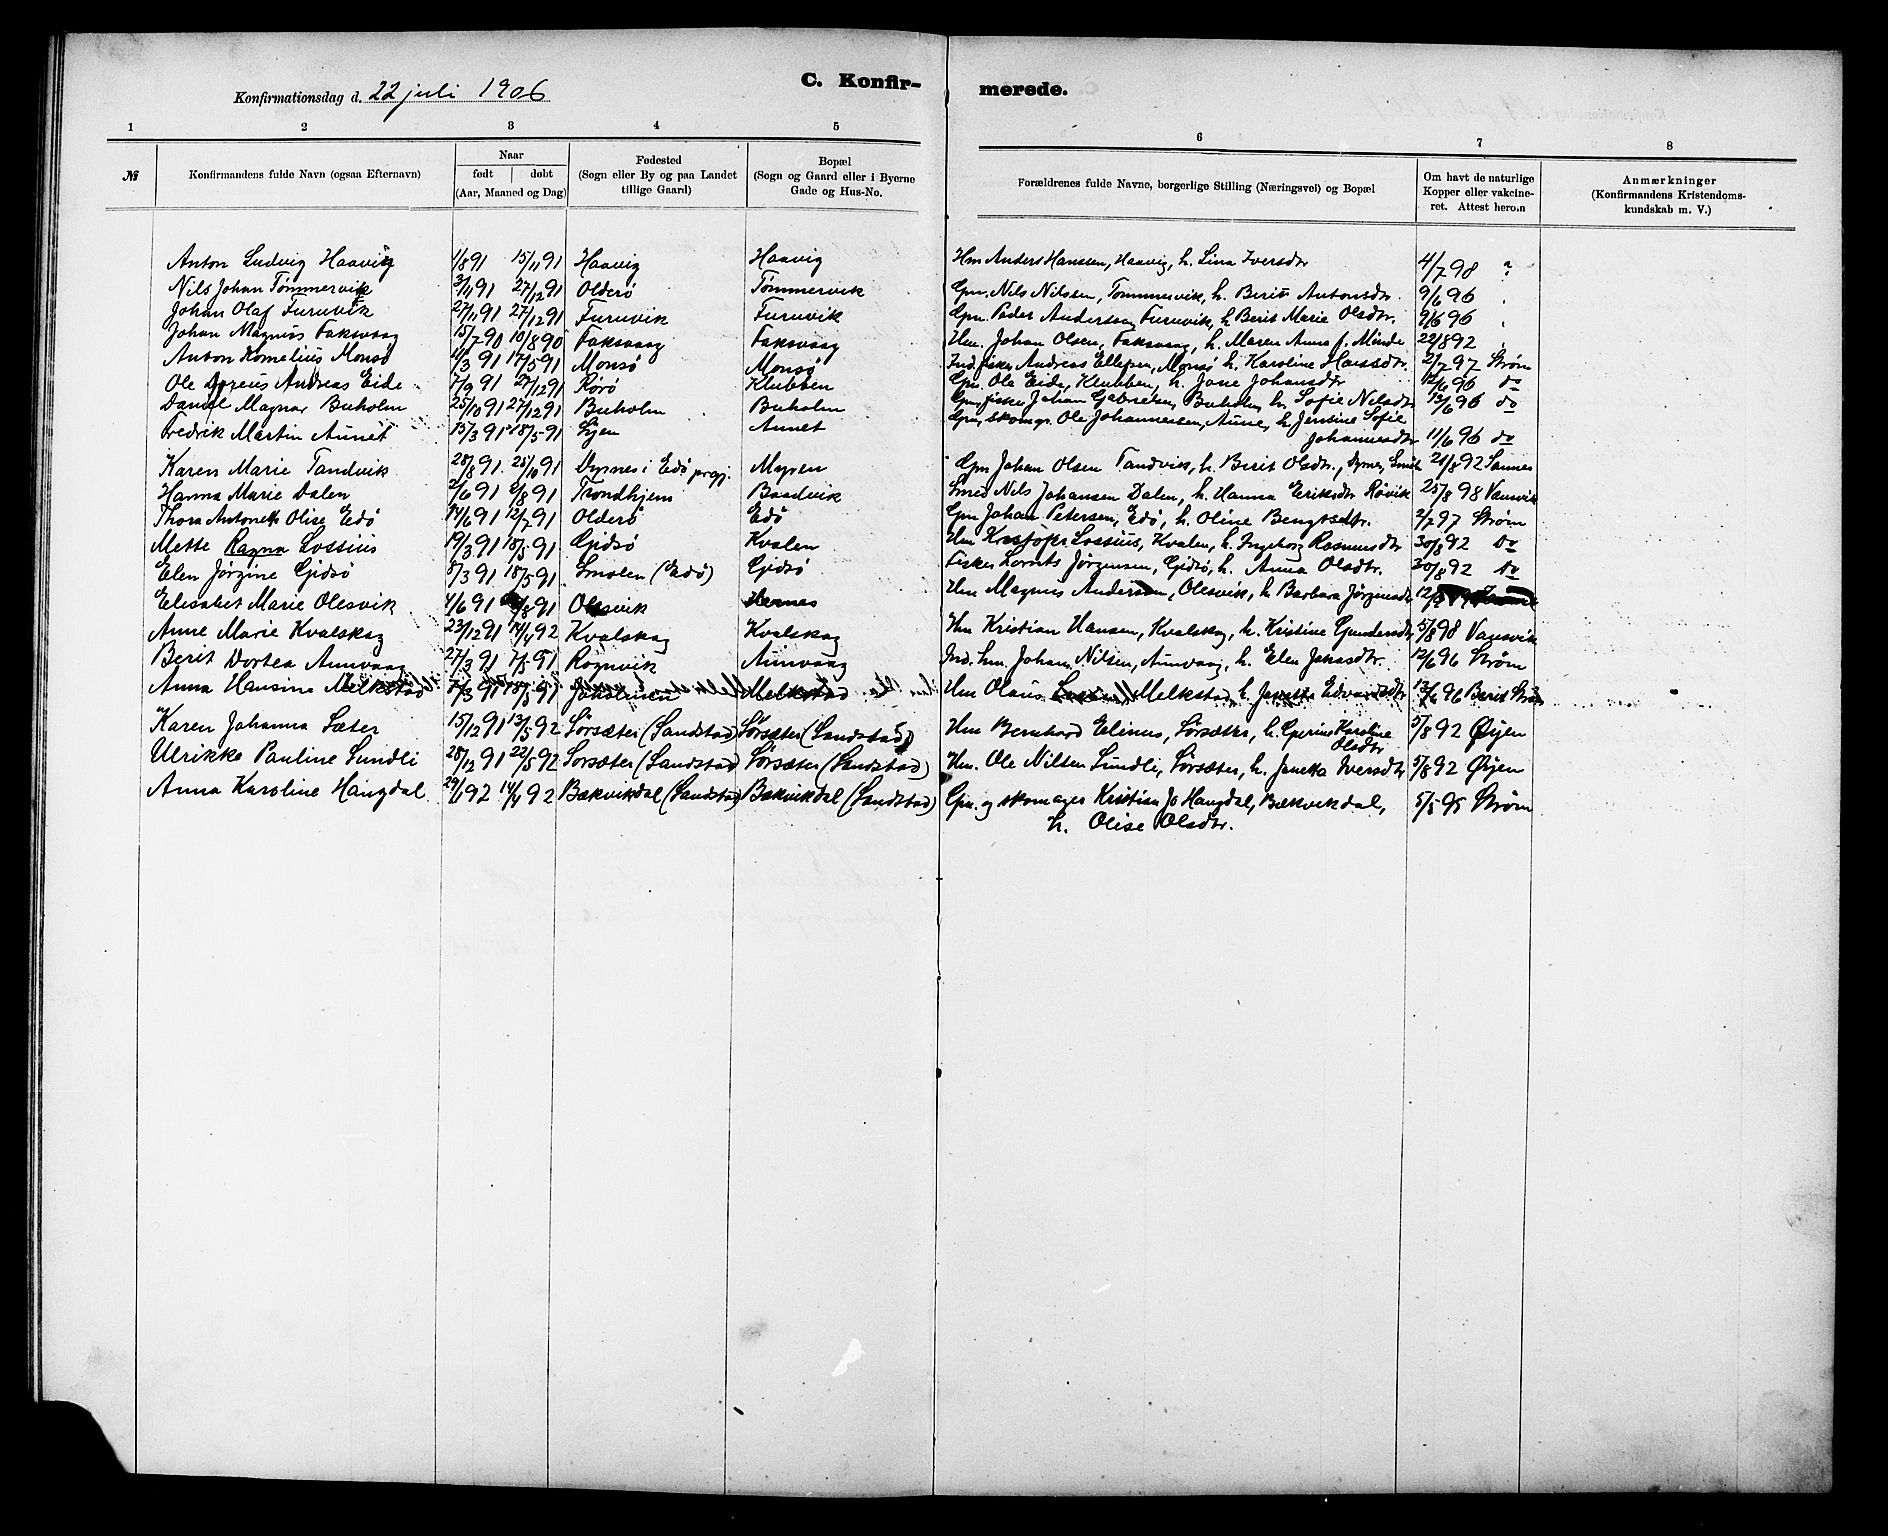 Konfirmationsdag d. 22 juli 1906
C. Konfir-
merede.
1 2 3 4 5 6 7 8
№
Konfirmandens fulde Navn (ogsaa Efternavn)
Naar
født døbt
(Aar, Maaned og Dag)
Fødested
(Sogn eller By og paa Landet
tillige Gaard)
Bopæl
(Sogn og Gaard eller i Byerne
Gade og Hus-No.
Forældrenes fulde Navne, borgerlige Stilling (Næringsvei) og Bopæl
Om havt de naturlige
Kopper eller vakcine-
ret. Attest herom
Anmærkninger
(Konfirmandens Kristendoms-
kundskab m. V.)
Anton Ludvig Haavig 1/8 91 15/11 91 Haavig Haavig Hm Anders Hanssen, Haavig, h. Lina Iversdtr 4/7 98 ?
Nils Johan Tømmervik 3/11 91 27/12 91 Olderø Tømmervik Gm. Nils Nilssen, Tømmervik, h. Berit Antonsdtr. 9/6 96
Johan Olaf Furuvik 27/11 91 27/12 91 Furuvik Furuvik Gm. Peder Anderssen Furuvik, h Berit Marie Olsdtr. 9/6 96
Johan Magnus Faksvaag 15/7 90 10/8 90 Faksvaag Faksvaag Hm. Johan Olsen, Faksvaag, h. Maren Anna f. Minde 22/8 92
Anton Kornelius Monsø 11/3 91 17/5 91 Monsø Monsø Ind. fisker Andreas Ellefsen, Monsø h. Karoline Hansdtr. 2/7 97 Strøm
Ole Andreas Eide 7/9 91 27/12 91 Rørø Klubben Gm. Ole Eide, Klubben, h. Jane Johansdtr 12/6 96 do
Daniel Magnar Buholm 25/10 91 27/12 91 Buholm Buholm Gm, fisker Johan Gabrielsen, Buholm, h. Sofie Nilsdtr 13/6 96 do
Fredrik Martin Aunet 15/3 91 18/5 91 Aunet Gm, skomgr. Ole Johannessen, Aune, h Jensine Sofie
Johannesdtr 11/6 96 do
Karen Marie Tandvik 28/8 91 25/10 91 Dyrnes i Edø prgj. Myren Gm Johan Olsen Tandvik, h. Berit Olsdtr., Dyrnes, 21/8 92 Sannes
Hanna Marie Dalen 2/6 91 2/8 91 Trondhjem Baadvik Smed Nils Johansen Dalen, h. Hanna Eriksdtr Røvik 25/8 98 Vansvik
Thora Antonette Olise Edø 14/6 91 12/7 91 Olderø Edø Gm Johan Petersen, Edø, h. Oline Bengtsdtr. 2/7 97 Strøm
Mette Ragna Lossius 19/3 91 18/5 91 Gjidsø Kvalen Hm Kristofer Lossius, Kvalen, h. Ingeborg Rasmusdtr 30/8 92 do
Elen Jørgine Gjidsø 8/3 91 18/5 91 Smølen (Edø) Gjidsø Fisker Lornts Jørgensen, Gjidsø, h. Anna Olsdtr. 30/8 92 do
Elisabet Marie Olesvik 4/6 91 /8 91 Olesvik Hernes Hm Magnus Andersen, Olesvik, h Barbara Jørgensdtr
Anne Marie Kvalskag 23/12 91 14/4 92 Kvalskag Kvalskag Hm Kristian Hansen, Kvalskag, h. Kristine Gundersdtr 5/8 98 Vansvik
Berit Dortea Aunvaag 27/3 91 7/5 91 Røgnvik Aunvaag Ind. hm. Johan Nilsen, Aunvaag, h. Elen Jakobsdtr. 12/6 96 Strøm
Anna Hansine Melkstad 7/3 91 18/5 91 Melkstad Hm Olaus Melkstad, h. Janetta Edvardsdtr 13/6 96 Berit Strøm
Karen Johanna Sæter 15/12 91 13/5 92 Sørsæter (Sandstad) Sørsæter (Sandstad) Hm Bernhard Elinus, Sørsæter, h. Gurine Karoline
Olsdtr 5/8 92 Øijen
Ulrikke Pauline Sundli 28/12 91 22/5 92 Sørsæter (Sandstad) Sørsæter (Sandstad) Hm. Ole Nilsen Sundli, Sørsæter, h. Janetta Iversdtr 5/8 92 Øijen
Anna Karoline Haugdal 29/1 92 14/4 92 Bækvikdal (Sandstad) Bækvikdal (Sandstad) Gm. og skomager Kristian Jo Haugdal, Bækvikdal,
h. Olise Olsdtr. 5/5 95 Strøm